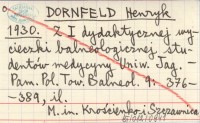 DORNFELD Henryk
1930. Z I dydaktycznej wy-
cieczki balneologicznej stu-
dentów medycyny Uniw. Jag. —
Pam. Pol. Tow. Balneol. 9: 376-
-389, il.
M. in. Krościenko i Szczawnica